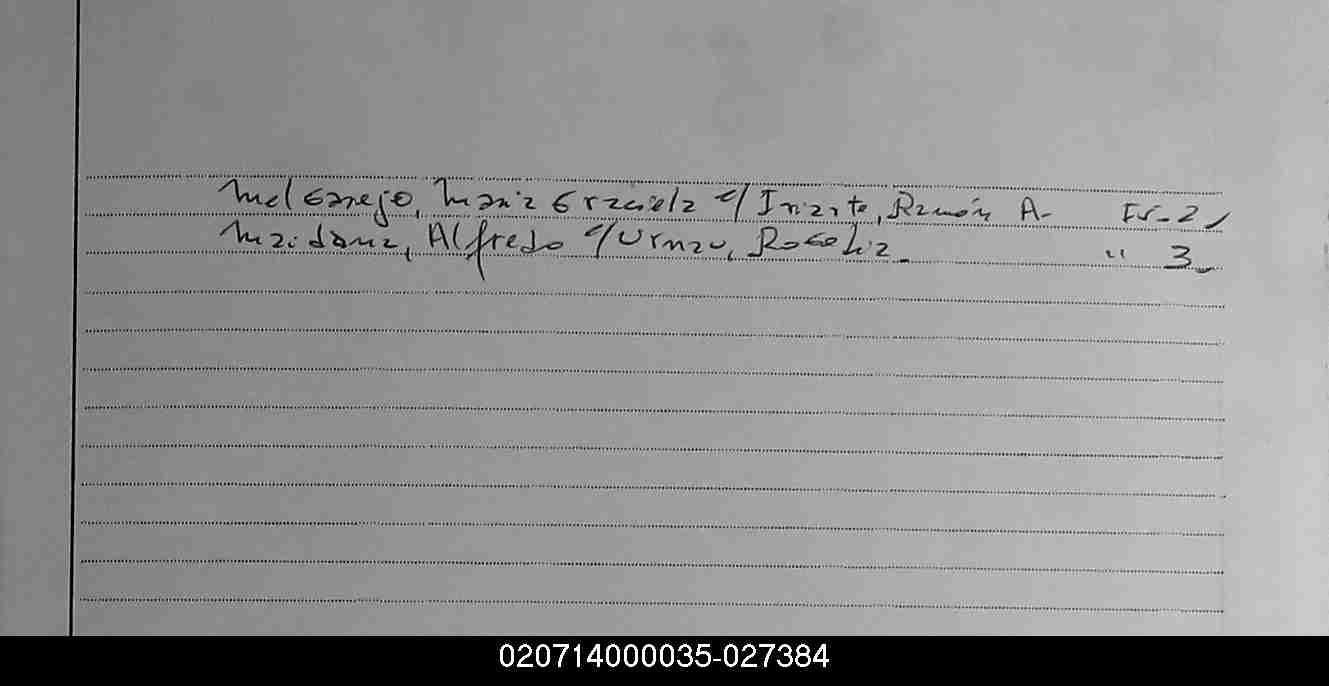 Melgarejo, Maria Graciela c/ Iriarte, Ramón A- Fs- 2,
Maidana, Alfredo c/ Urnau, Rogelia - " 3-
020714000035-027384